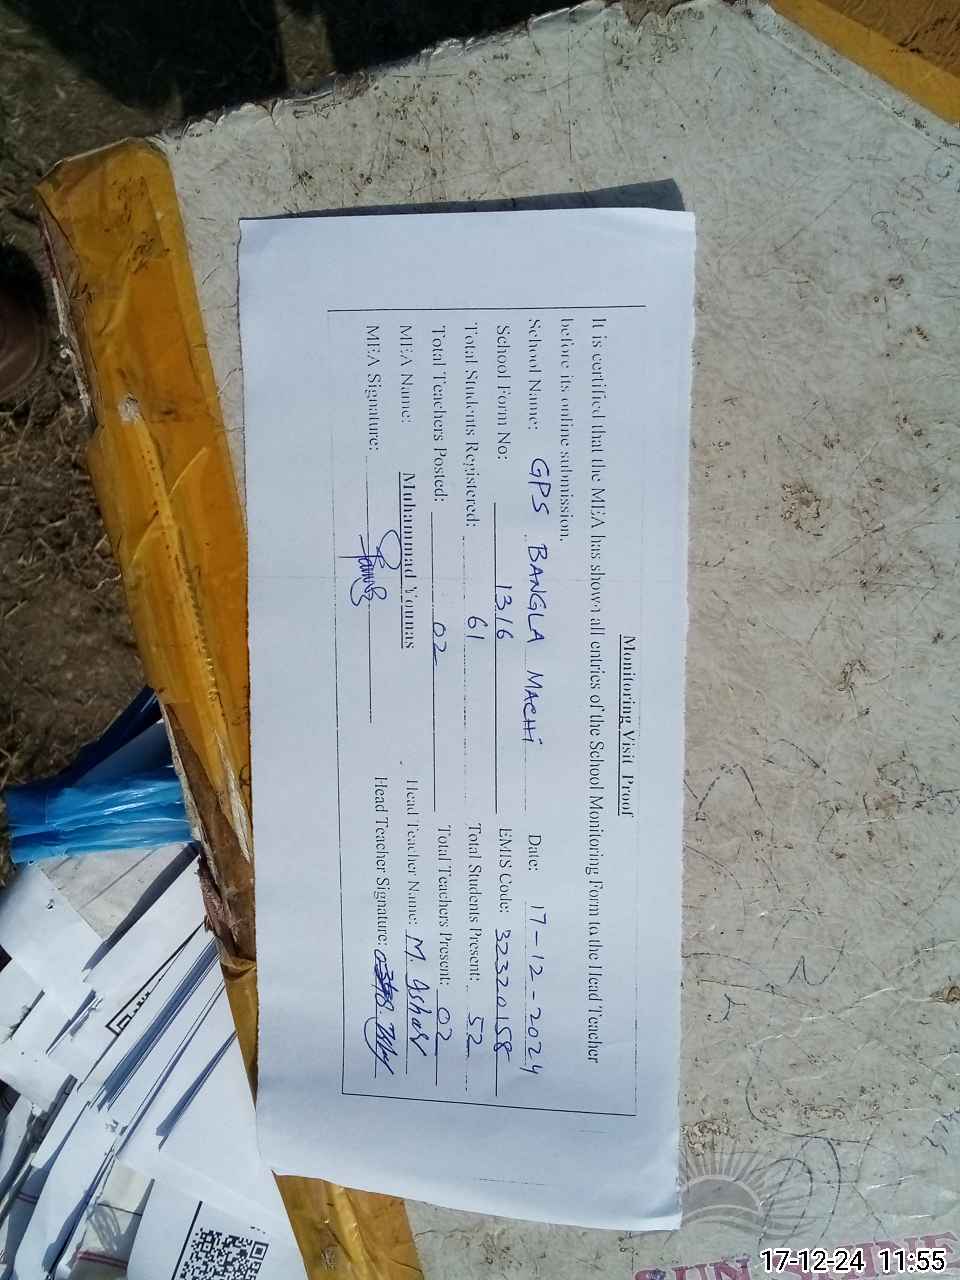 Monitoring Visit Proof
It is certified that the MEA has shown all entries of the School Monitoring Form to the Head Teacher
before its online submission.
School Name: GPS BANGLA MACHI Date: 17-12-2024
School Form No: 1316 EMIS Code: 32320158
Total Students Registered: 61 Total Students Present: 52
Total Teachers Posted: 02 Total Teachers Present: 02
MEA Name: Muhammad Younas Head Teacher Name: M. Ashar
MEA Signature: Head Teacher Signature:
SUN SHINE
17-12-24 11:55